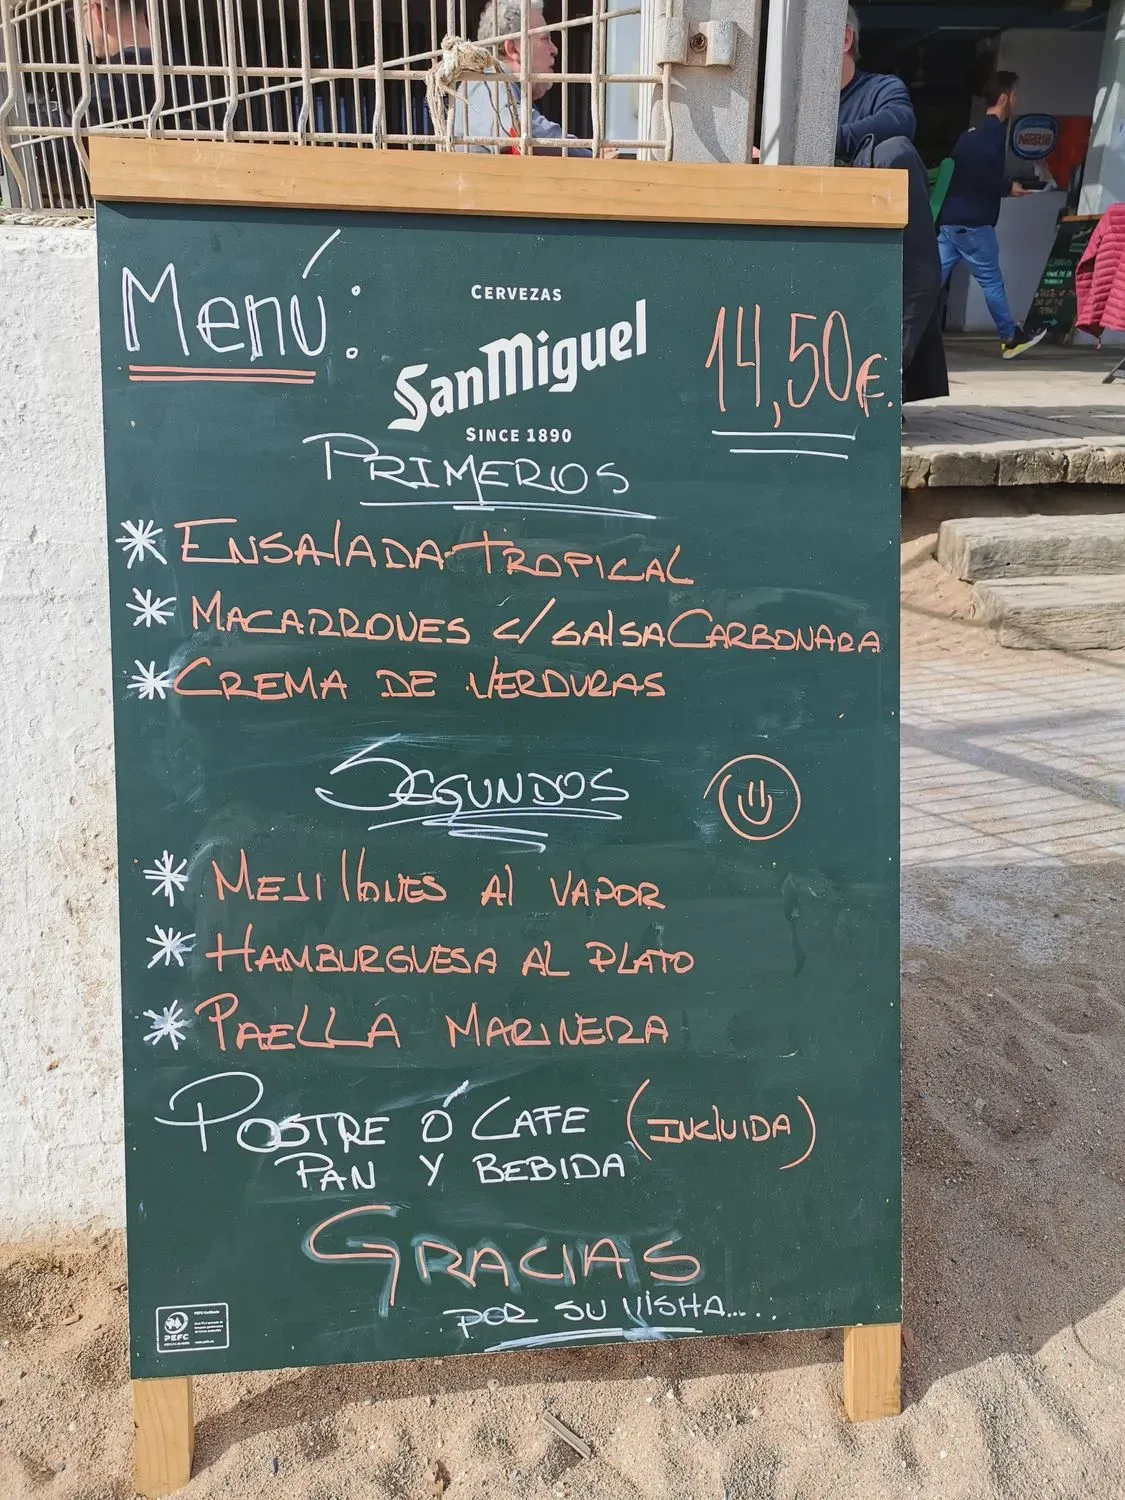 Menú:
CERVEZAS
SanMiguel
SINCE 1890
14,50€.
PRIMEROS
* ENSALADA TROPICAL
* MACARRONES c/ SALSA CARBONARA
* CREMA DE VERDURAS
SEGUNDOS
* MEJILLONES AL VAPOR
* HAMBURGUESA AL PLATO
* PAELLA MARINERA
POSTRE Ó CAFE (INCLUIDA)
PAN Y BEBIDA
GRACIAS
POR SU VISITA.....
PEFC
Nestlé